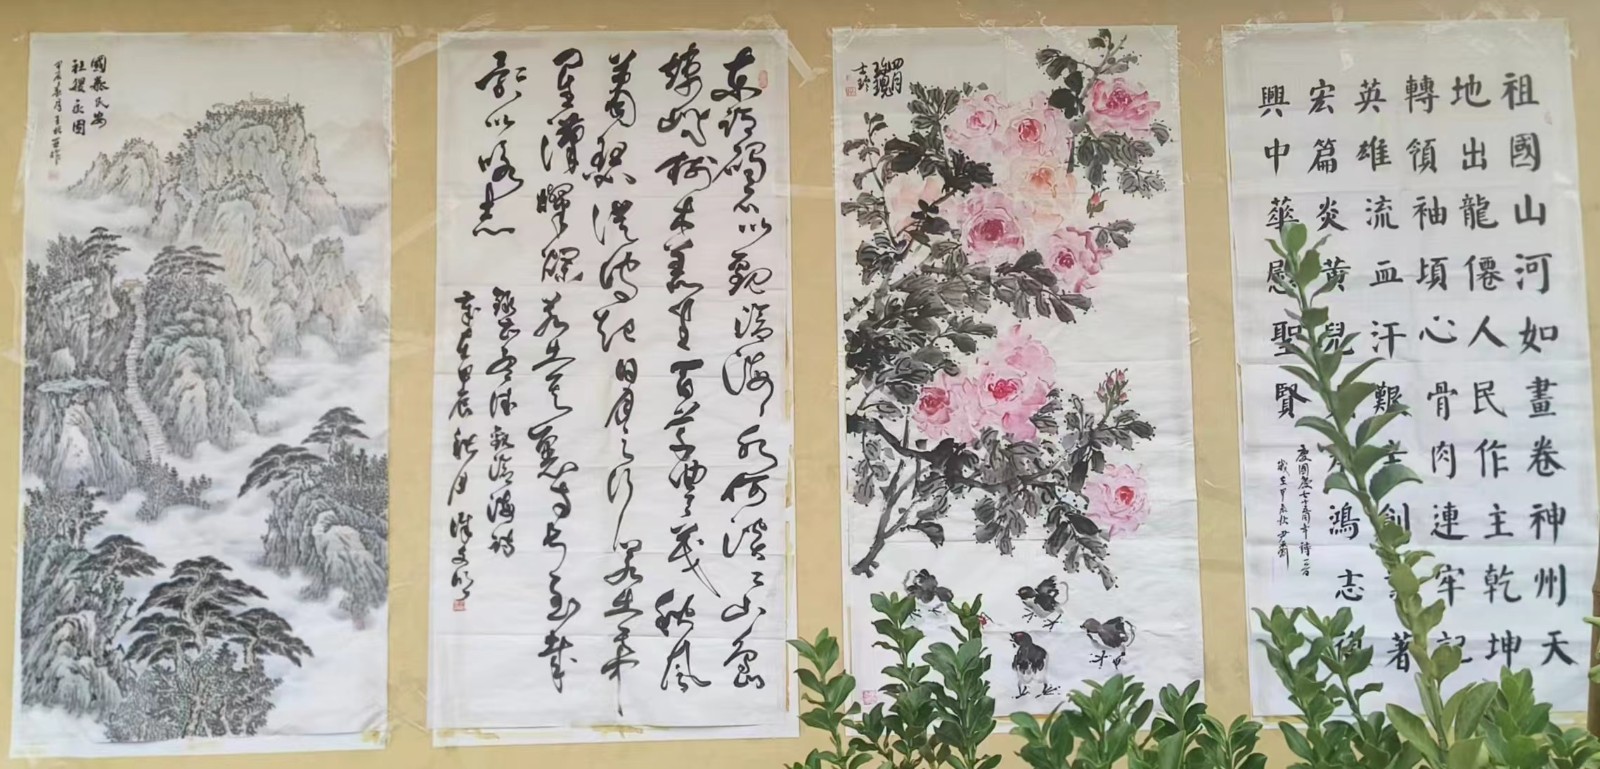 國泰民安
社稷永固
東臨碣石以觀滄海水何澹澹山島
竦峙樹木叢生百草豐茂秋風
蕭瑟洪波湧起日月之行若出其中
星漢燦爛若出其裏幸甚至哉
歌以詠志
錄曹孟德觀滄海詩
歲在甲辰秋月
四月
士珍
祖國山河如畫卷神州天
地出龍僊人民作主乾坤
轉領袖頃心骨肉連牢記
英雄流血汗艱主創著
宏篇炎黃兒鴻志
興中華慰聖賢
慶國慶七十五周年詩一首
歲在甲辰秋